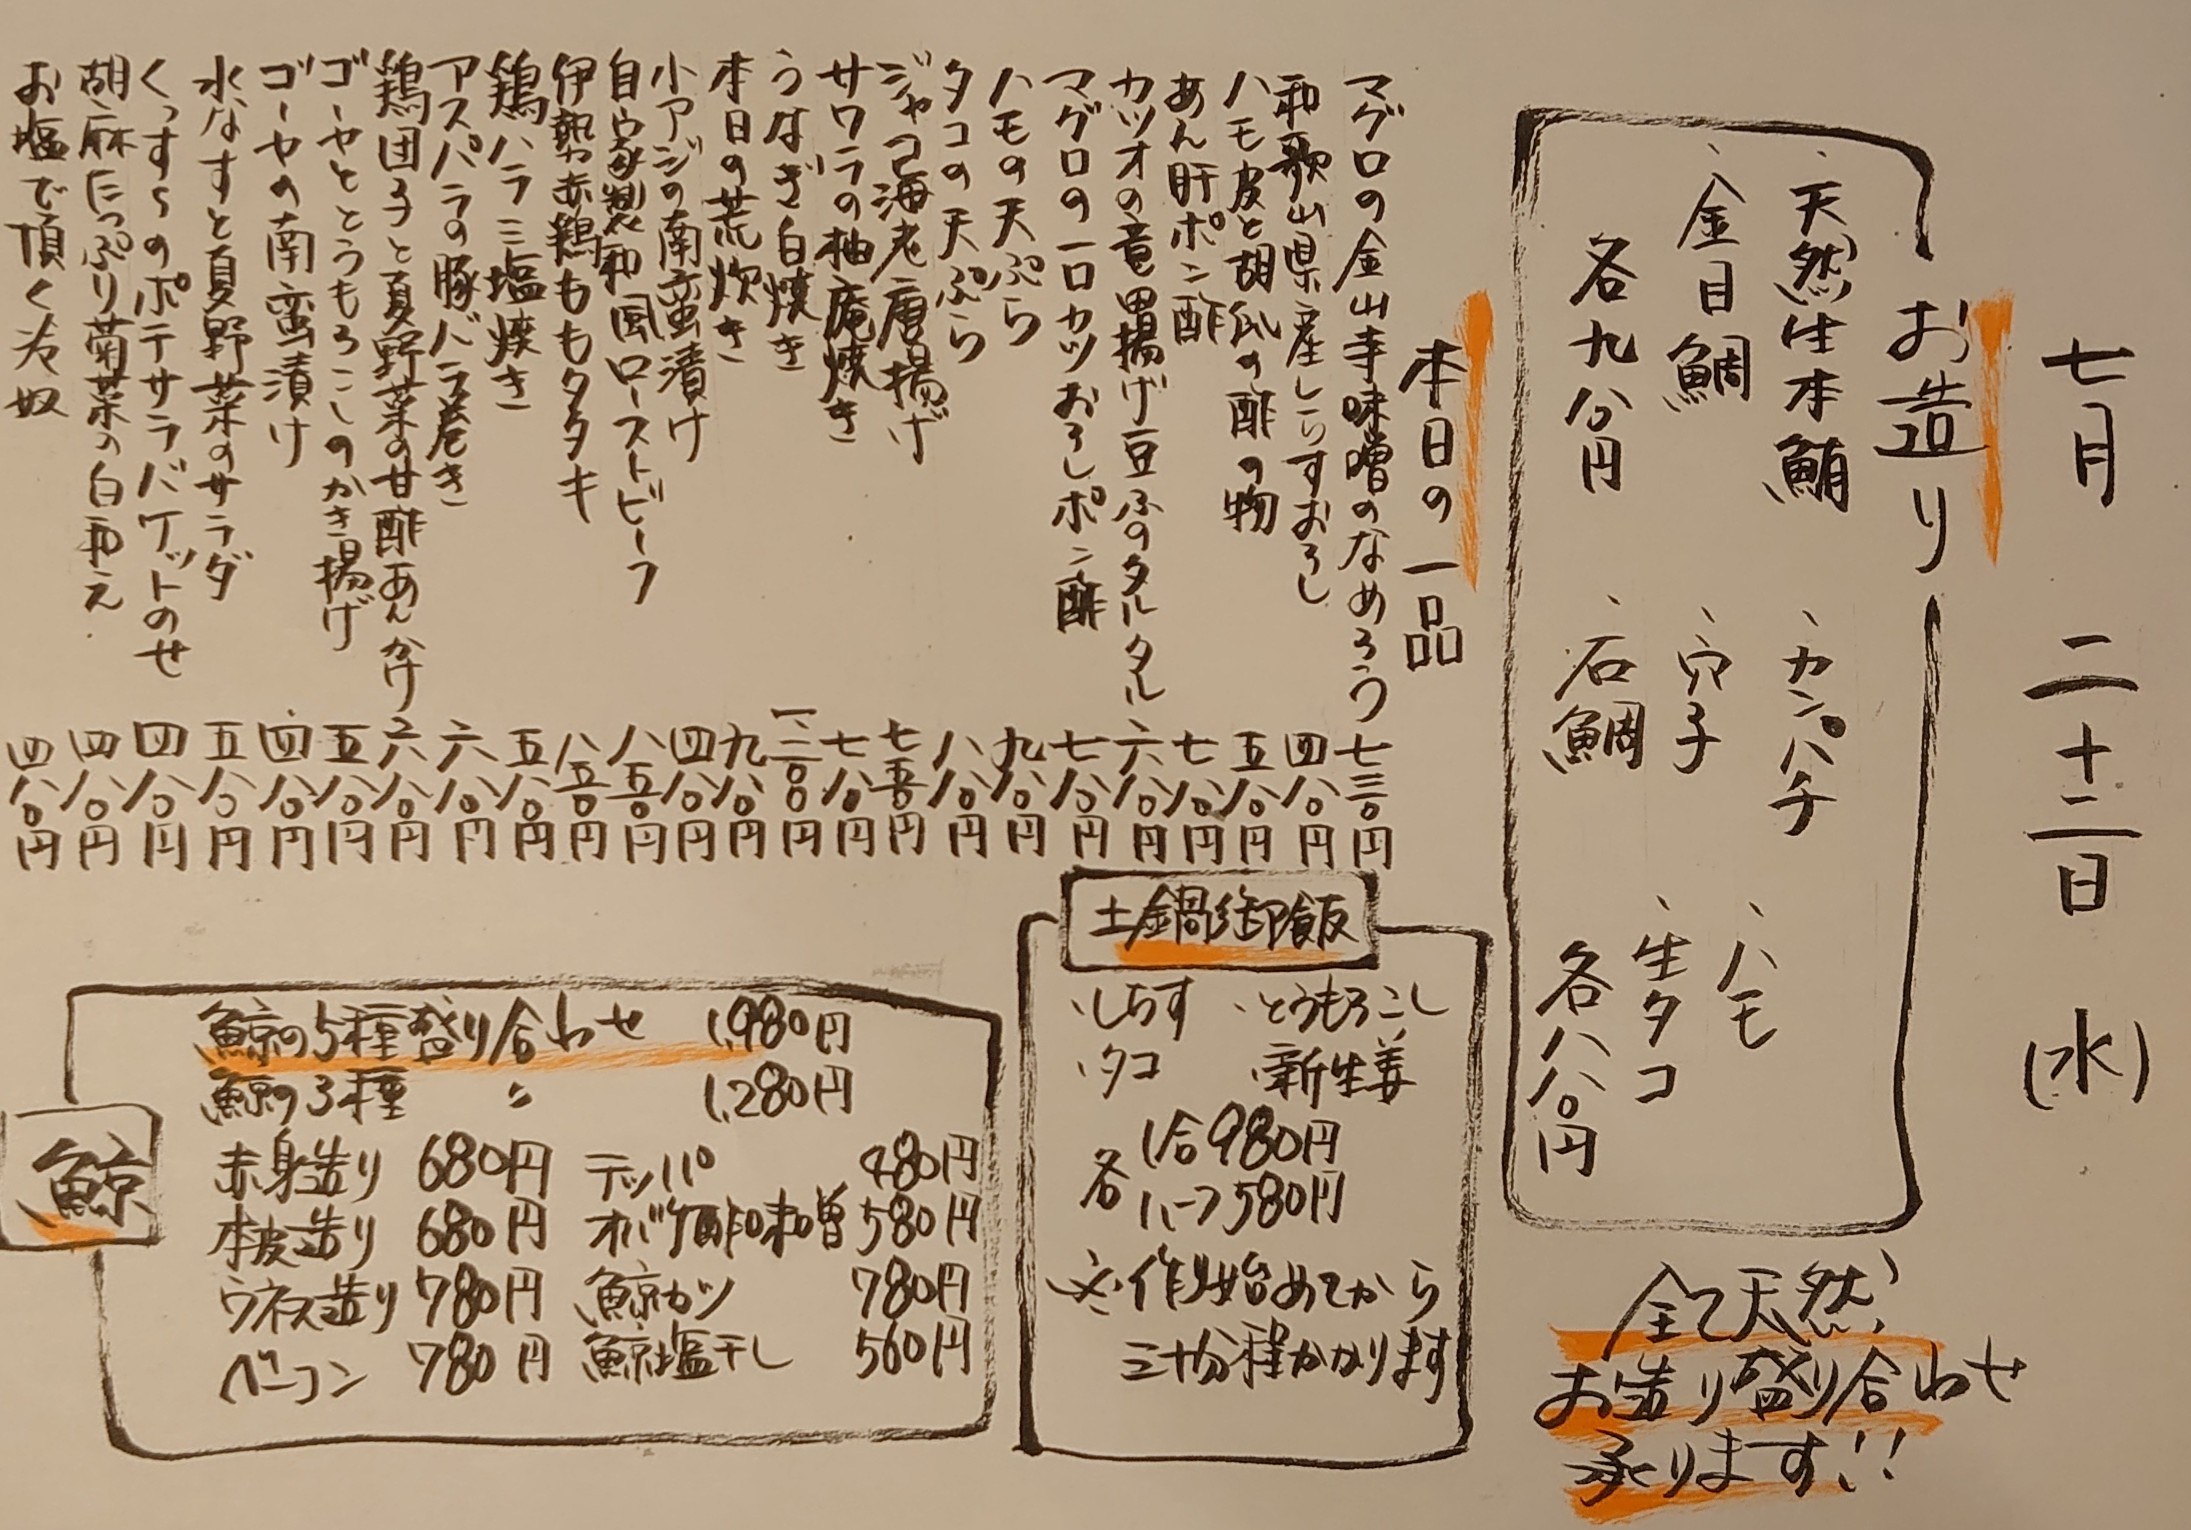 七月二十二日(水)
お造り
、天然生本鮪
、金目鯛
各九八〇円
、カンパチ
、穴子
、石鯛
、ハモ
、生タコ
各八八〇円
全て天然
お造り盛り合わせ
承ります!!
本日の一品
マグロの金山寺味噌のなめろう 七三〇円
和歌山県産しらすおろし 四八〇円
ハモ皮と胡瓜の酢の物 五八〇円
あん肝ポン酢 七八〇円
カツオの竜田揚げ豆ふのタルタル 六八〇円
マグロの一口カツおろしポン酢 七八〇円
ハモの天ぷら 九八〇円
タコの天ぷら 八八〇円
ジャコ海老唐揚げ 七五〇円
サワラの柚庵焼き 七八〇円
うなぎ白焼き 一二〇〇円
本日の荒炊き 九八〇円
小アジの南蛮漬け 四八〇円
自家製和風ローストビーフ 八五〇円
伊勢赤鶏ももタタキ 八五〇円
鶏ハラミ塩焼き 五八〇円
アスパラの豚バラ巻き 六八〇円
鶏団子と夏野菜の甘酢あんかけ 六八〇円
ゴーヤととうもろこしのかき揚げ 五八〇円
ゴーヤの南蛮漬け 四八〇円
水なすと夏野菜のサラダ 五八〇円
くっすらのポテサラバケットのせ 四八〇円
胡麻たっぷり菊菜の白和え 四八〇円
お塩で頂く冷奴 四八〇円
土鍋御飯
・しらす ・とうもろこし
・タコ ・新生姜
各 1合980円
ハーフ580円
※作り始めてから
三十分程かかります
鯨
鯨の5種盛り合わせ 1,980円
鯨の3種 〃 1,280円
赤身造り 680円 テッパ 480円
本皮造り 680円 オバケ酢味噌 580円
ウネス造り 780円 鯨カツ 780円
ベーコン 780円 鯨塩干し 560円